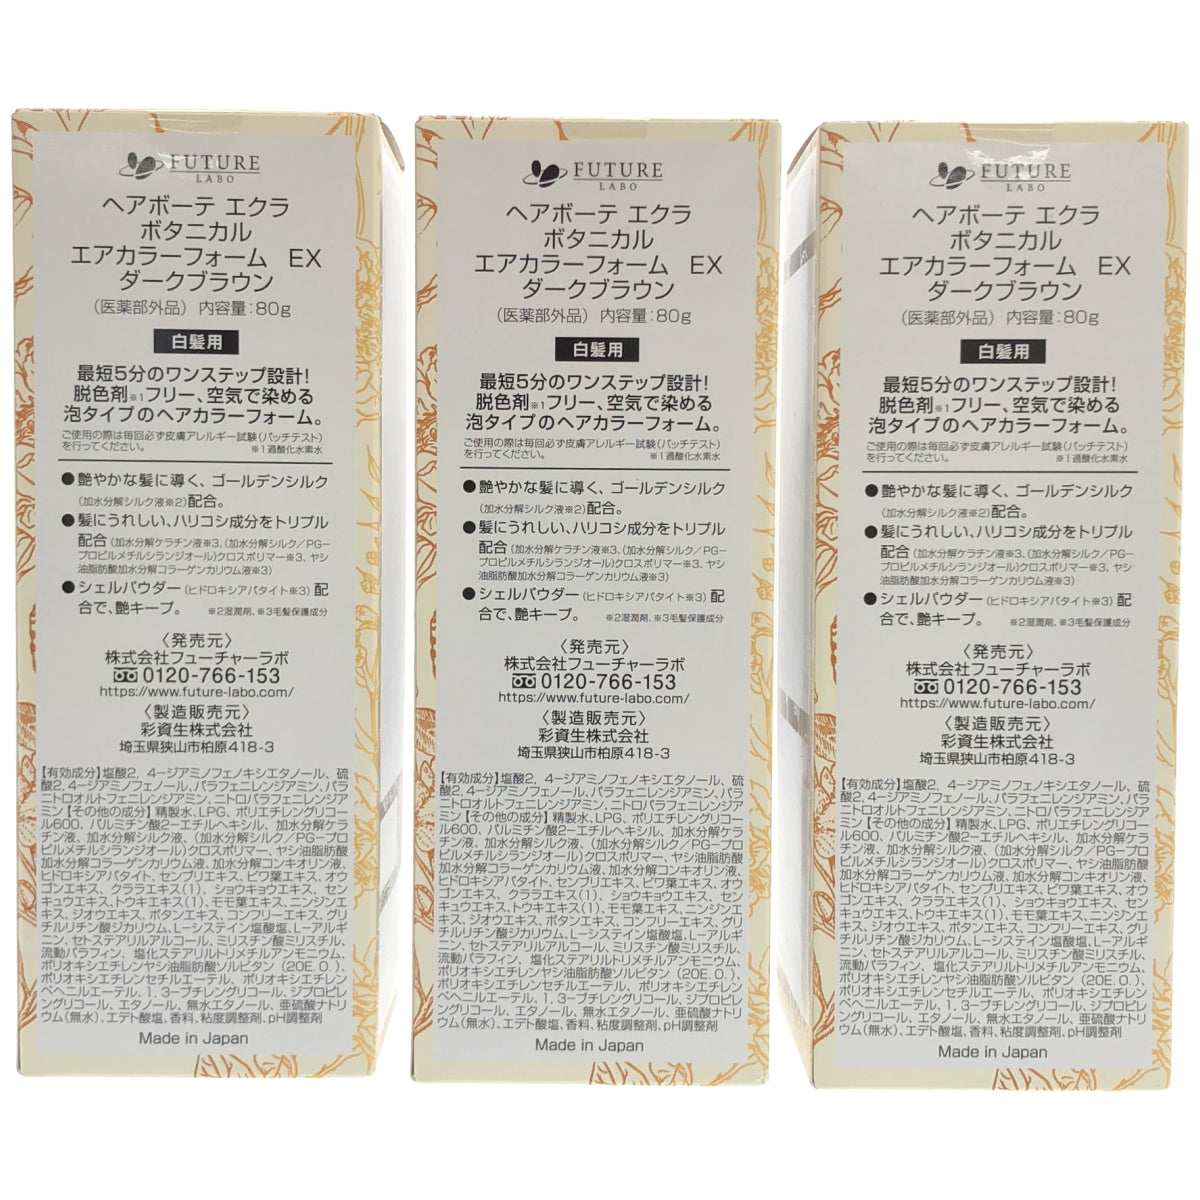 FUTURE
LABO
ヘアボーテ エクラ
ボタニカル
エアカラーフォーム EX
ダークブラウン
(医薬部外品) 内容量:80g
白髪用
最短5分のワンステップ設計!
脱色剤※1フリー、空気で染める
泡タイプのヘアカラーフォーム。
ご使用の際は毎回必ず皮膚アレルギー試験(パッチテスト)
を行ってください。 ※1過酸化水素水
●艶やかな髪に導く、ゴールデンシルク
(加水分解シルク液※2)配合。
●髪にうれしい、ハリコシ成分をトリプル
配合(加水分解ケラチン液※3、(加水分解シルク/PG-
プロピルメチルシランジオール)クロスポリマー※3、ヤシ
油脂肪酸加水分解コラーゲンカリウム液※3)
●シェルパウダー(ヒドロキシアパタイト※3)配
合で、艶キープ。 ※2湿潤剤、※3毛髪保護成分
〈発売元〉
株式会社フューチャーラボ
0120-766-153
https://www.future-labo.com/
〈製造販売元〉
彩資生株式会社
埼玉県狭山市柏原418-3
【有効成分】塩酸2, 4-ジアミノフェノキシエタノール、硫
酸2,4-ジアミノフェノール、パラフェニレンジアミン、パラ
ニトロオルトフェニレンジアミン、ニトロパラフェニレンジア
ミン【その他の成分】精製水、LPG、ポリエチレングリコー
ル600、パルミチン酸2-エチルヘキシル、加水分解ケラ
チン液、加水分解シルク液、(加水分解シルク/PG-プロ
ピルメチルシランジオール)クロスポリマー、ヤシ油脂肪酸
加水分解コラーゲンカリウム液、加水分解コンキオリン液、
ヒドロキシアパタイト、センブリエキス、ビワ葉エキス、オウ
ゴンエキス、クララエキス(1)、ショウキョウエキス、セン
キュウエキス、トウキエキス(1)、モモ葉エキス、ニンジンエ
キス、ジオウエキス、ボタンエキス、コンフリーエキス、グリ
チルリチン酸ジカリウム、L-システイン塩酸塩、L-アルギ
ニン、セトステアリルアルコール、ミリスチン酸ミリスチル、
流動パラフィン、塩化ステアリルトリメチルアンモニウム、
ポリオキシエチレンヤシ油脂肪酸ソルビタン(20E.O.)、
ポリオキシエチレンセチルエーテル、ポリオキシエチレン
ベヘニルエーテル、1,3-ブチレングリコール、ジプロピレ
ングリコール、エタノール、無水エタノール、亜硫酸ナトリ
ウム(無水)、エデト酸塩、香料、粘度調整剤、pH調整剤
Made in Japan
FUTURE
LABO
ヘアボーテ エクラ
ボタニカル
エアカラーフォーム EX
ダークブラウン
(医薬部外品) 内容量:80g
白髪用
最短5分のワンステップ設計!
脱色剤※1フリー、空気で染める
泡タイプのヘアカラーフォーム。
ご使用の際は毎回必ず皮膚アレルギー試験(パッチテスト)
を行ってください。 ※1過酸化水素水
●艶やかな髪に導く、ゴールデンシルク
(加水分解シルク液※2)配合。
●髪にうれしい、ハリコシ成分をトリプル
配合(加水分解ケラチン液※3、(加水分解シルク/PG-
プロピルメチルシランジオール)クロスポリマー※3、ヤシ
油脂肪酸加水分解コラーゲンカリウム液※3)
●シェルパウダー(ヒドロキシアパタイト※3)配
合で、艶キープ。 ※2湿潤剤、※3毛髪保護成分
〈発売元〉
株式会社フューチャーラボ
0120-766-153
https://www.future-labo.com/
〈製造販売元〉
彩資生株式会社
埼玉県狭山市柏原418-3
【有効成分】塩酸2, 4-ジアミノフェノキシエタノール、硫
酸2,4-ジアミノフェノール、パラフェニレンジアミン、パラ
ニトロオルトフェニレンジアミン、ニトロパラフェニレンジア
ミン【その他の成分】精製水、LPG、ポリエチレングリコー
ル600、パルミチン酸2-エチルヘキシル、加水分解ケラ
チン液、加水分解シルク液、(加水分解シルク/PG-プロ
ピルメチルシランジオール)クロスポリマー、ヤシ油脂肪酸
加水分解コラーゲンカリウム液、加水分解コンキオリン液、
ヒドロキシアパタイト、センブリエキス、ビワ葉エキス、オウ
ゴンエキス、クララエキス(1)、ショウキョウエキス、セン
キュウエキス、トウキエキス(1)、モモ葉エキス、ニンジンエ
キス、ジオウエキス、ボタンエキス、コンフリーエキス、グリ
チルリチン酸ジカリウム、L-システイン塩酸塩、L-アルギ
ニン、セトステアリルアルコール、ミリスチン酸ミリスチル、
流動パラフィン、塩化ステアリルトリメチルアンモニウム、
ポリオキシエチレンヤシ油脂肪酸ソルビタン(20E.O.)、
ポリオキシエチレンセチルエーテル、ポリオキシエチレン
ベヘニルエーテル、1,3-ブチレングリコール、ジプロピレ
ングリコール、エタノール、無水エタノール、亜硫酸ナトリ
ウム(無水)、エデト酸塩、香料、粘度調整剤、pH調整剤
Made in Japan
FUTURE
LABO
ヘアボーテ エクラ
ボタニカル
エアカラーフォーム EX
ダークブラウン
(医薬部外品) 内容量:80g
白髪用
最短5分のワンステップ設計!
脱色剤※1フリー、空気で染める
泡タイプのヘアカラーフォーム。
ご使用の際は毎回必ず皮膚アレルギー試験(パッチテスト)
を行ってください。 ※1過酸化水素水
●艶やかな髪に導く、ゴールデンシルク
(加水分解シルク液※2)配合。
●髪にうれしい、ハリコシ成分をトリプル
配合(加水分解ケラチン液※3、(加水分解シルク/PG-
プロピルメチルシランジオール)クロスポリマー※3、ヤシ
油脂肪酸加水分解コラーゲンカリウム液※3)
●シェルパウダー(ヒドロキシアパタイト※3)配
合で、艶キープ。 ※2湿潤剤、※3毛髪保護成分
〈発売元〉
株式会社フューチャーラボ
0120-766-153
https://www.future-labo.com/
〈製造販売元〉
彩資生株式会社
埼玉県狭山市柏原418-3
【有効成分】塩酸2, 4-ジアミノフェノキシエタノール、硫
酸2,4-ジアミノフェノール、パラフェニレンジアミン、パラ
ニトロオルトフェニレンジアミン、ニトロパラフェニレンジア
ミン【その他の成分】精製水、LPG、ポリエチレングリコー
ル600、パルミチン酸2-エチルヘキシル、加水分解ケラ
チン液、加水分解シルク液、(加水分解シルク/PG-プロ
ピルメチルシランジオール)クロスポリマー、ヤシ油脂肪酸
加水分解コラーゲンカリウム液、加水分解コンキオリン液、
ヒドロキシアパタイト、センブリエキス、ビワ葉エキス、オウ
ゴンエキス、クララエキス(1)、ショウキョウエキス、セン
キュウエキス、トウキエキス(1)、モモ葉エキス、ニンジンエ
キス、ジオウエキス、ボタンエキス、コンフリーエキス、グリ
チルリチン酸ジカリウム、L-システイン塩酸塩、L-アルギ
ニン、セトステアリルアルコール、ミリスチン酸ミリスチル、
流動パラフィン、塩化ステアリルトリメチルアンモニウム、
ポリオキシエチレンヤシ油脂肪酸ソルビタン(20E.O.)、
ポリオキシエチレンセチルエーテル、ポリオキシエチレン
ベヘニルエーテル、1,3-ブチレングリコール、ジプロピレ
ングリコール、エタノール、無水エタノール、亜硫酸ナトリ
ウム(無水)、エデト酸塩、香料、粘度調整剤、pH調整剤
Made in Japan